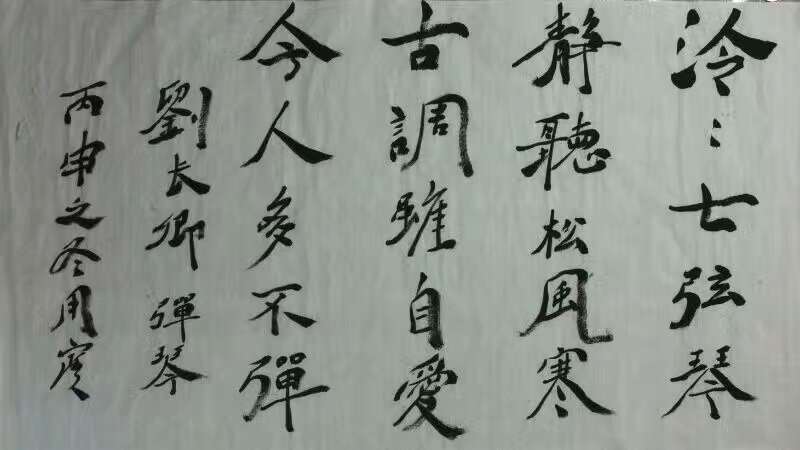 泠〻七弦琴
靜聽松風寒
古調雖自愛
今人多不彈
劉长卿 彈琴
丙申之冬用寛